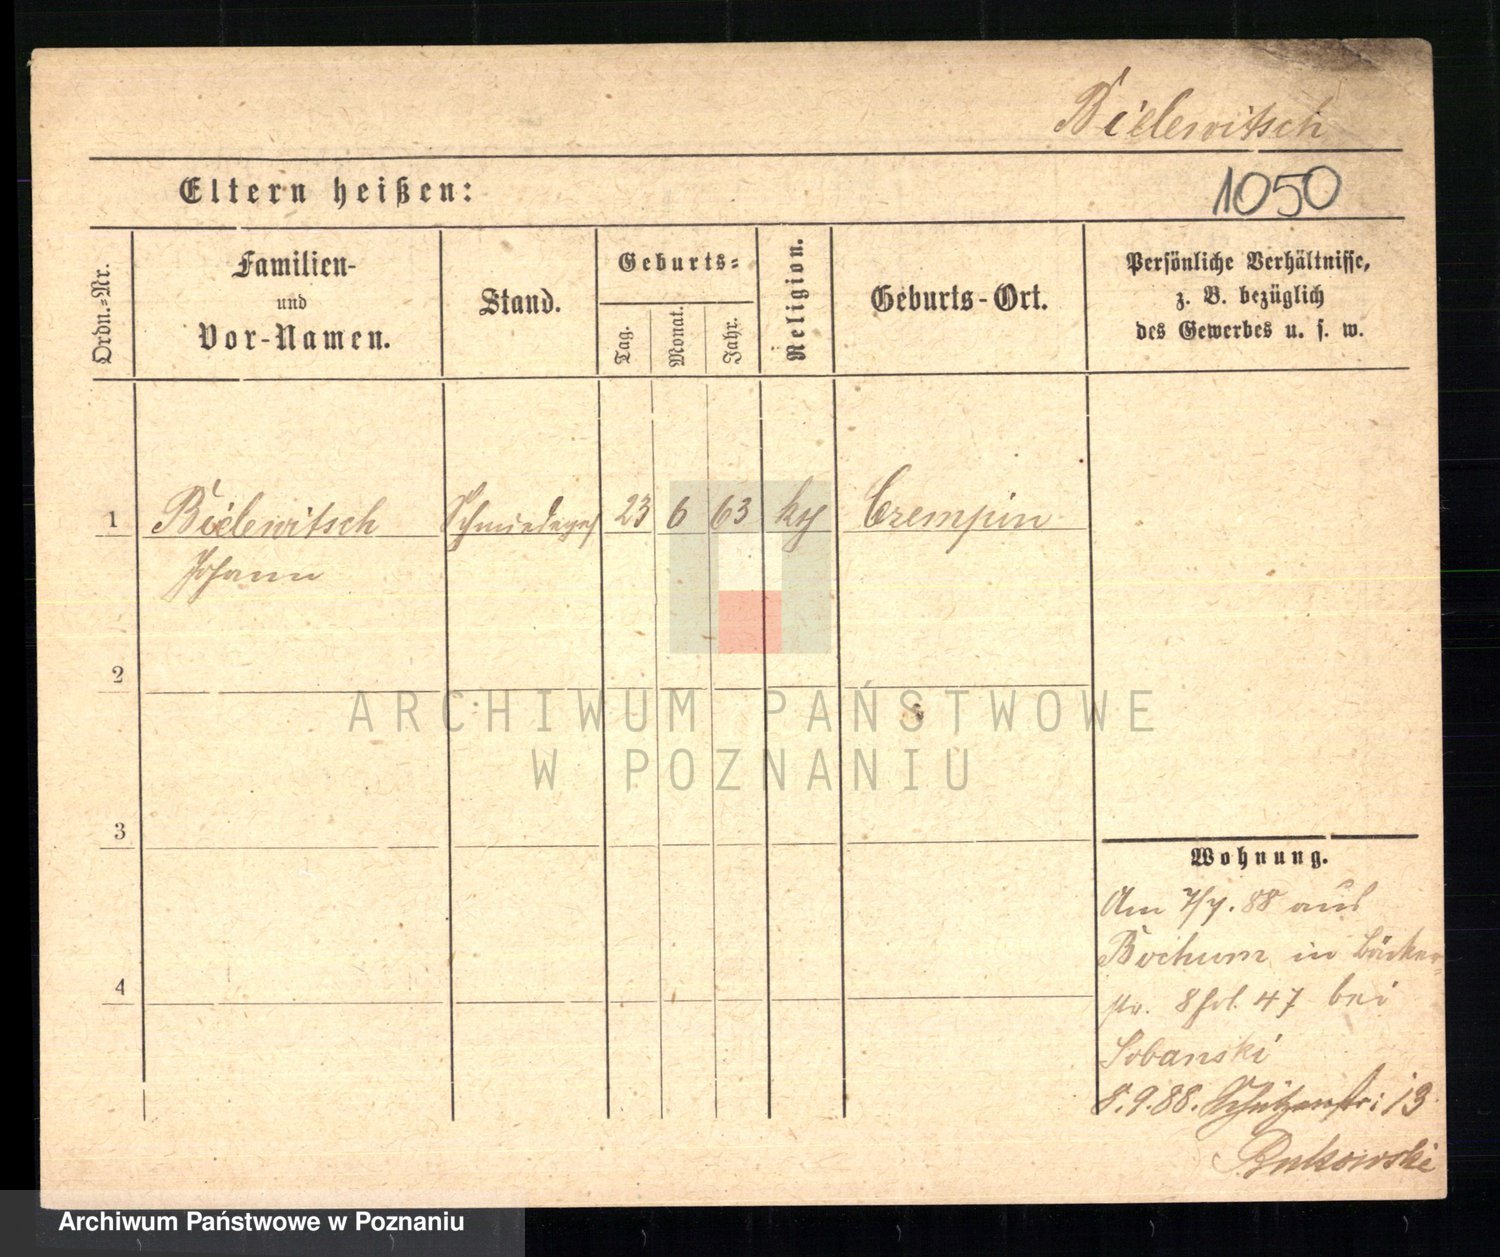 Bielewitsch
Eltern heißen:
1050
Ordn.-Nr.
Familien-
und
Vor-Namen.
Stand.
Geburts-
Tag.
Monat.
Jahr.
Religion.
Geburts-Ort.
Persönliche Verhältnisse,
z. B. bezüglich
des Gewerbes u. s. w.
1 Bielewitsch Schmiedeges 23 6 63 Czempin
Johann
2
3
4
ARCHIWUM PAŃSTWOWE
W POZNANIU
Wohnung.
Am 7/7. 88 aus
Bochum in Bäcker-
str. 47 bei
Sobanski
8.9.88. Schützenstr: 13
Bukowski
Archiwum Państwowe w Poznaniu